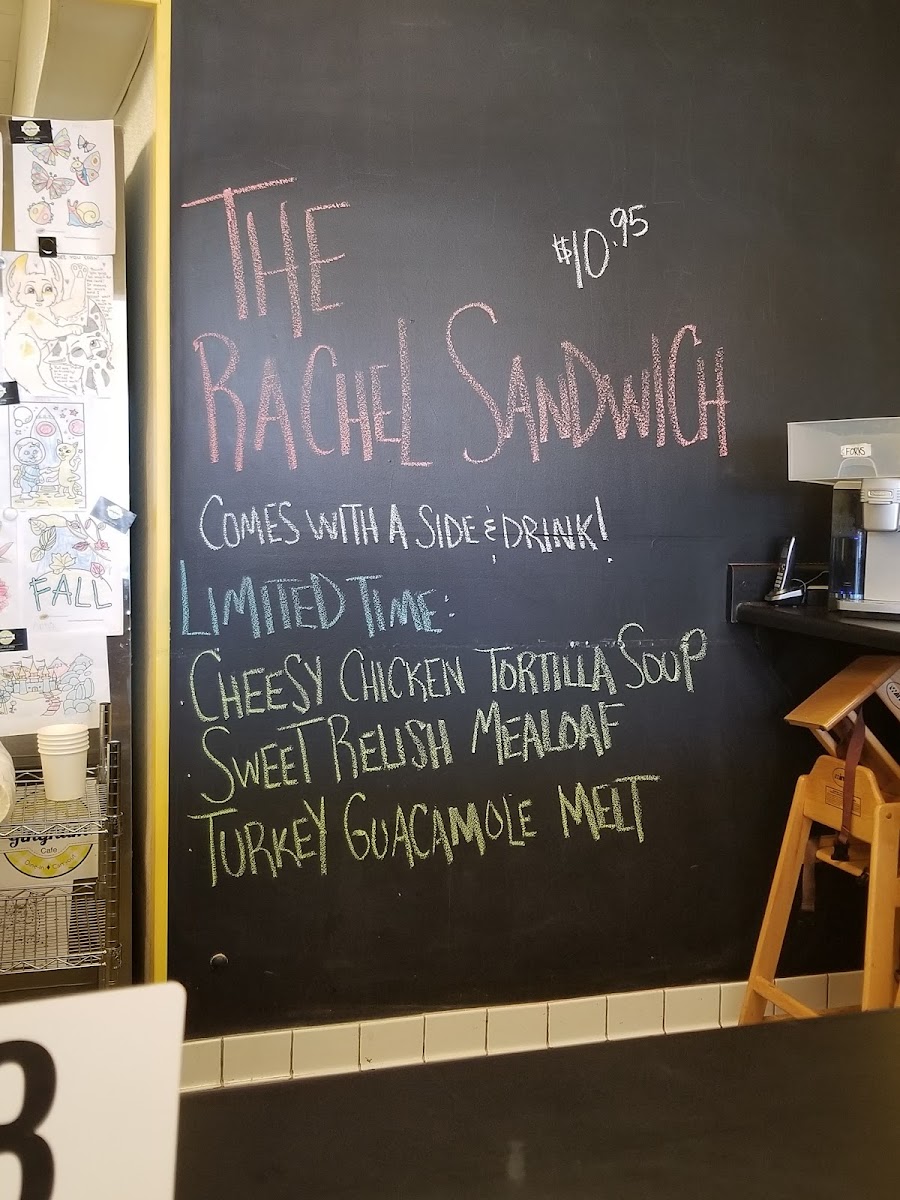 THE
$10.95
RACHEL SANDWICH
COMES WITH A SIDE & DRINK!
LIMITED TIME:
· CHEESY CHICKEN TORTILLA SOUP
· SWEET RELISH MEALOAF
· TURKEY GUACAMOLE MELT
FORKS
FALL
Cafe
3